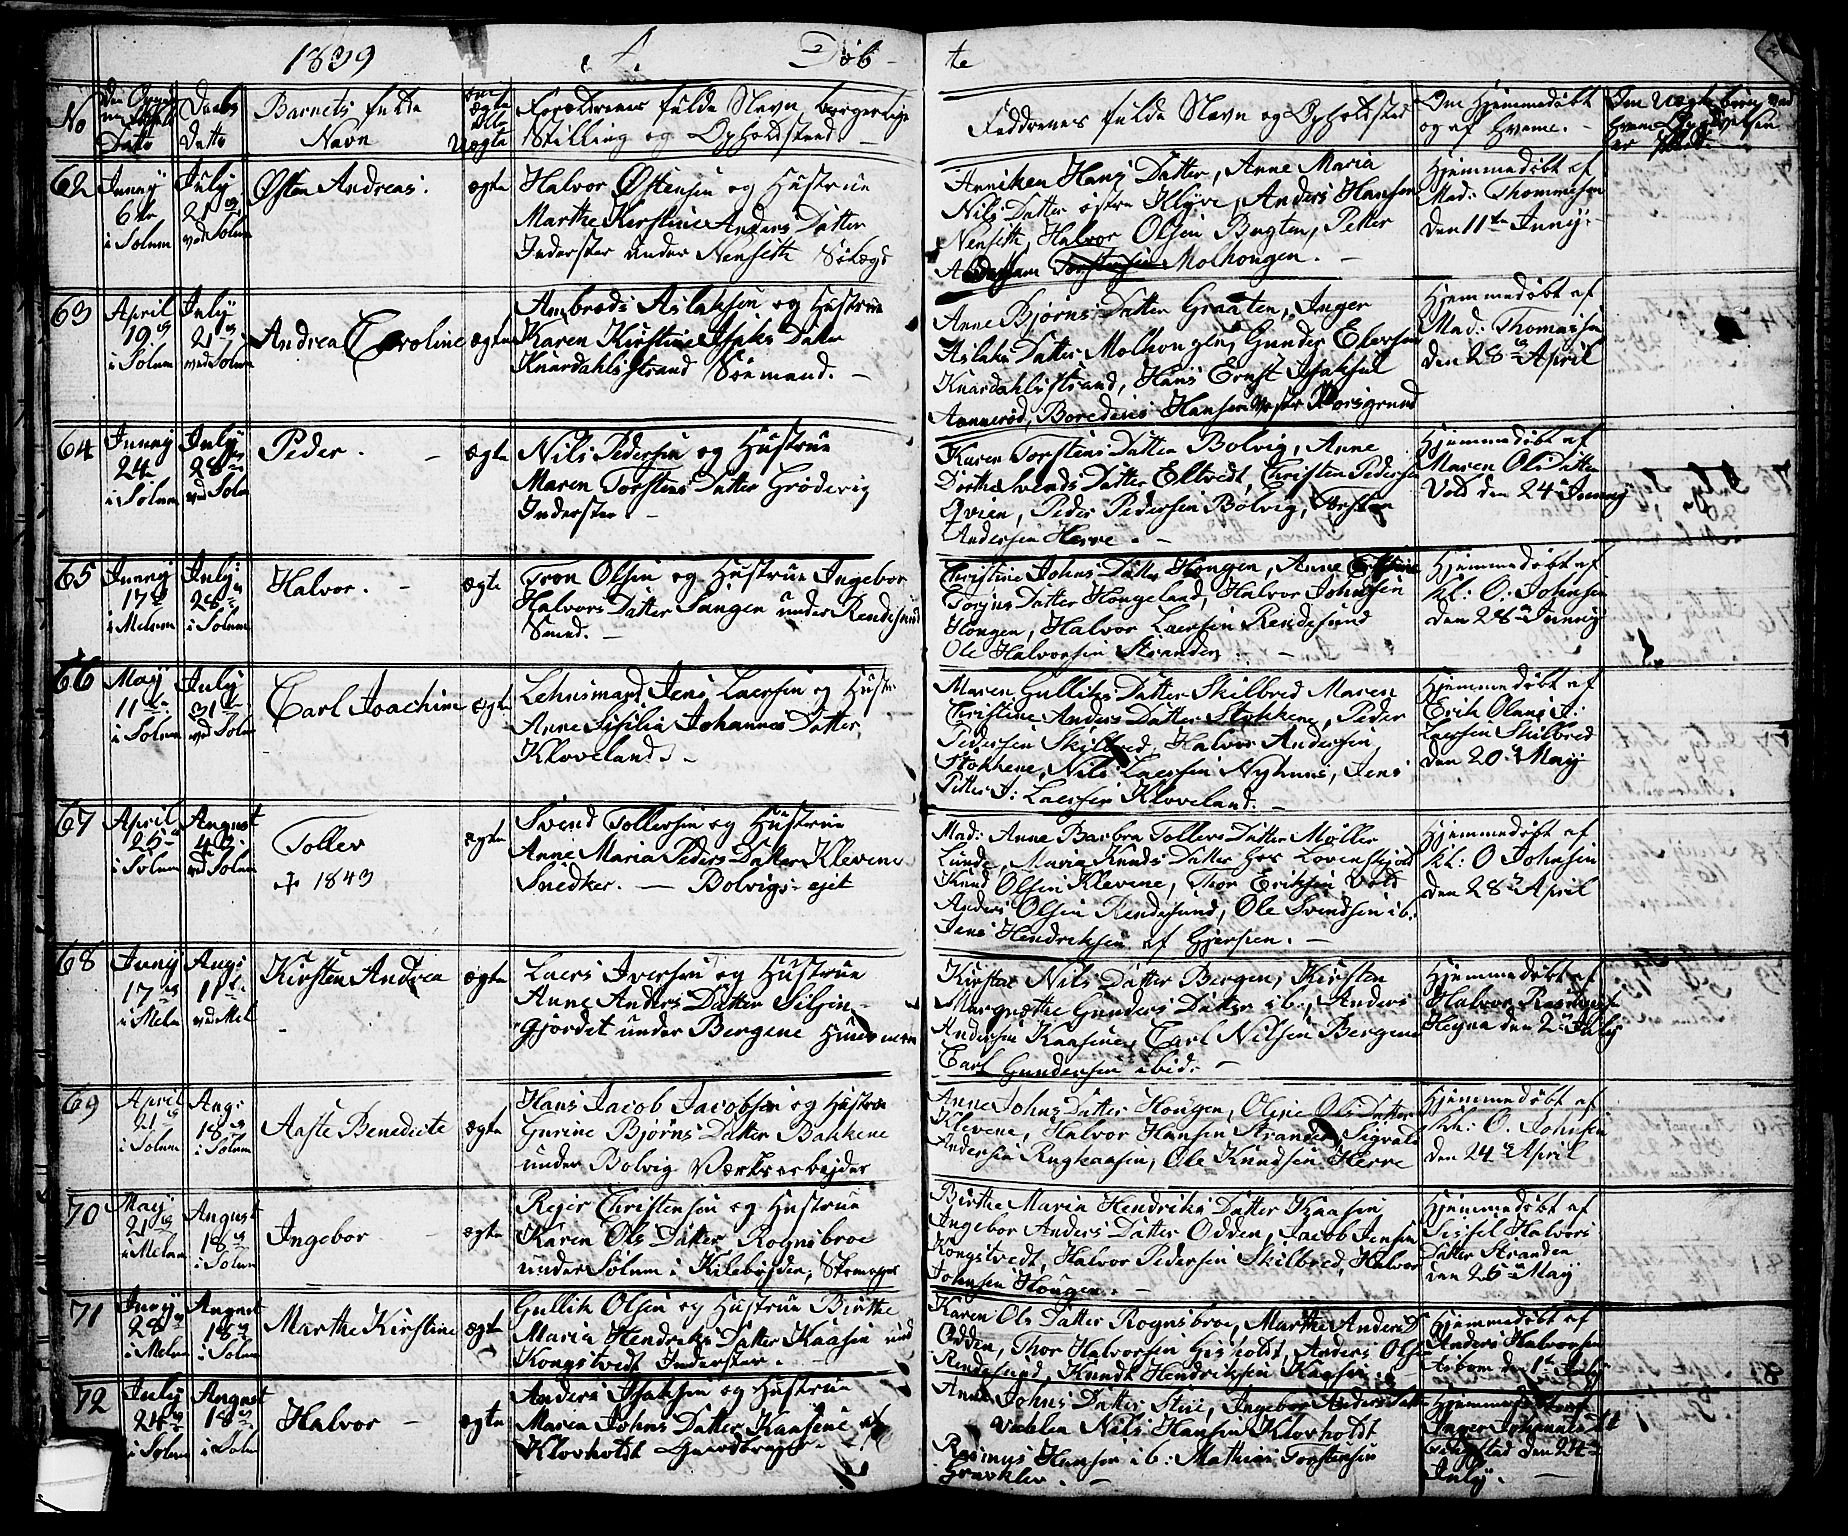 1839 A. Døb-
te
No
Daabs
Datto
Barnets fulde
Navn
ægte
Uægte
Forældrenes fulde Navn borgerlige
Stilling og Opholdsted
Faddrenes fulde Navn og Opholdsted
Om Hjemmedøbt
og af Hvem.
62
Junny
6te
i Solum
July
21
ved Solum
Østen Andreas.
ægte
Halvor Østensen og Hustrue
Marthe Kirstine Anders Datter
Inderster under Nenseth
Anniken Hans Datter, Anne Maria
Nils Datter østre Klyve, Anders Hansen
Nenseth, Halvor Olsen Bugten, Petter
Molhougen.
Hjemmedøbt af
Mad: Thommesen
den 11te Junny
63
April
19
i Solum
July
21
ved Solum
Andrea Caroline
ægte
Aslaksen og Hustrue
Karen Kirstine Isaks Datter
Knardahlsstrand Søemand.
Anne Bjørns Datter Graaten, Inger
Aslaks Datter Molhougen, Gunder
Knardahlsstrand, Hans Ernst Isaksen
Hansen Porsgrund
Hjemmedøbt af
Mad: Thomassen
den 28 April
64
Junny
24
i Solum
July
28
ved Solum
Peder.
ægte
Nils Pedersen og Hustrue
Maren Torstens Datter Grøderig
Inderster.
Karen Torstens Datter Bolvig, Anne
Dorthe Svends Datter Eltvedt, Christen Pedersen
Peder Pedersen Bolvig, Torsten
Andersen Herre.
Hjemmedøbt af
Maren Ols Datter
Vold den 24 Junny
65
Junny
17
i Melum
July
28
i Solum
Halvor.
ægte
Tron Olsen og Hustrue Ingebor
Halvors Datter Langen under Rendesund
Smed.
Christine Johns Datter Hougen, Anne
Datter Hougeland, Halvor Johnsen
Hougen, Halvor Laersen Rendesund
Ole Halvorsen Stranden.
Hjemmedøbt af
kl: O: Johnsen
den 28 Junny
66
May
11
i Solum
July
31
ved Solum
Carl Joachim
ægte
Lehnsmand Jens Laersen og Hustr
Anne Sisilia Johannes Datter
Kloveland.
Maren Gulliks Datter Skilbred Maren
Christine Anders Datter Stokkene, Peder
Pedersen Skilbred, Halvor Andersen
Stokkene, Nils Laersen Nyhuus, Jens
Petter J: Laersen Kloveland.
Hjemmedøbt af
Erik Olaus J:
Laersen Skilbred
den 20 May
67
April
25
i Solum
August
4
ved Solum
Tollev
+ 1843
ægte
Svend Tollefsen og Hustrue
Anne Maria Peders Datter Klevene
Snedker. — Bolvigs-ejet
Mad: Anne Barbra Tollefs Datter Møller
Lunde, Maria Knuds Datter hos Lovenskjold
Knud Olsen Klevene, Thor Eriksen Vold
Anders Olsen Rendesund, Ole Svendsen ib.
Jens Hendriksen af Gjerpen.
Hjemmedøbt af
kl: O Johnsen
den 28 April
68
Juny
17
i Melum
Augs
11
ved Mel
Kirsten Andrea
ægte
Laers Iversen og Hustrue
Anne Anders Datter Siljen-
Gjordet under Bergene Huusmand
Kirsten Nils Datter Bergen, Kirsten
Margrethe Gunders Datter ib:, Anders
Andersen Kaasene, Carl Nilsen Bergene
Carl Gundersen ibid:
Hjemmedøbt af
Halvor Rasmusen
Heyna den 2 July
69
April
21
i Solum
Augs
18
i Solum
Aaste Benedicte
ægte
Hans Jacob Jacobsen og Hustrue
Gurine Bjørns Datter Bakkene
under Bolvig Værksarbejder
Anne Johns Datter Hougen, Olene Ols Datter
Klevene, Halvor Hansen Stranden, Sigvald
Andersen Rugkaasen, Ole Knudsen Herre
Hjemmedøbt af
kl: O. Johnsen
den 24 April
70
May
21
i Melum
August
18
i Solum
Ingebor
ægte
Rejer Christensen og Hustrue
Karen Ols Datter Rognsbroe
under Solum i Kilebøjden, Skomager
Birthe Maria Hendriks Datter Kaasen
Ingebor Anders Datter Odden, Jacob Jensen
Kongstvedt, Halvor Pedersen Skilbred, Halvor
Johnsen Hougen.
Hjemmedøbt af
Sissel Halvors
Datter Stranden
den 25 May
71
Juny
28
i Melum
August
18
i Solum
Marthe Kirstine
ægte
Gullik Olsen og Hustrue Birthe
Maria Hendriks Datter Kaasen und
Kongstvedt Inderster.
Karen Ols Datter Rognsbroe, Marthe Anders D
Odden, Thor Halvorsen Gisholt, Anders Olsen
Rendesund, Knudt Hendriksen Kaasen.
Hjemmedøbt af
Anders Halvorsen
Aasbom den 1 July
72
July
24
i Solum
August
18
i Solum
Halvor
ægte
Anders Isaksen og Hustrue
Maren Johns Datter Kaasene
Klovholdt Gaardbruger
Anne Johns Datter Stie, Ingebor Anders Datt
Nils Hansen Klovholdt
Rasmus Hansen ib: Mathias Torstensen
Gravklev.
Hjemmedøbt af
Inger Johannes Dt
den 24
July.